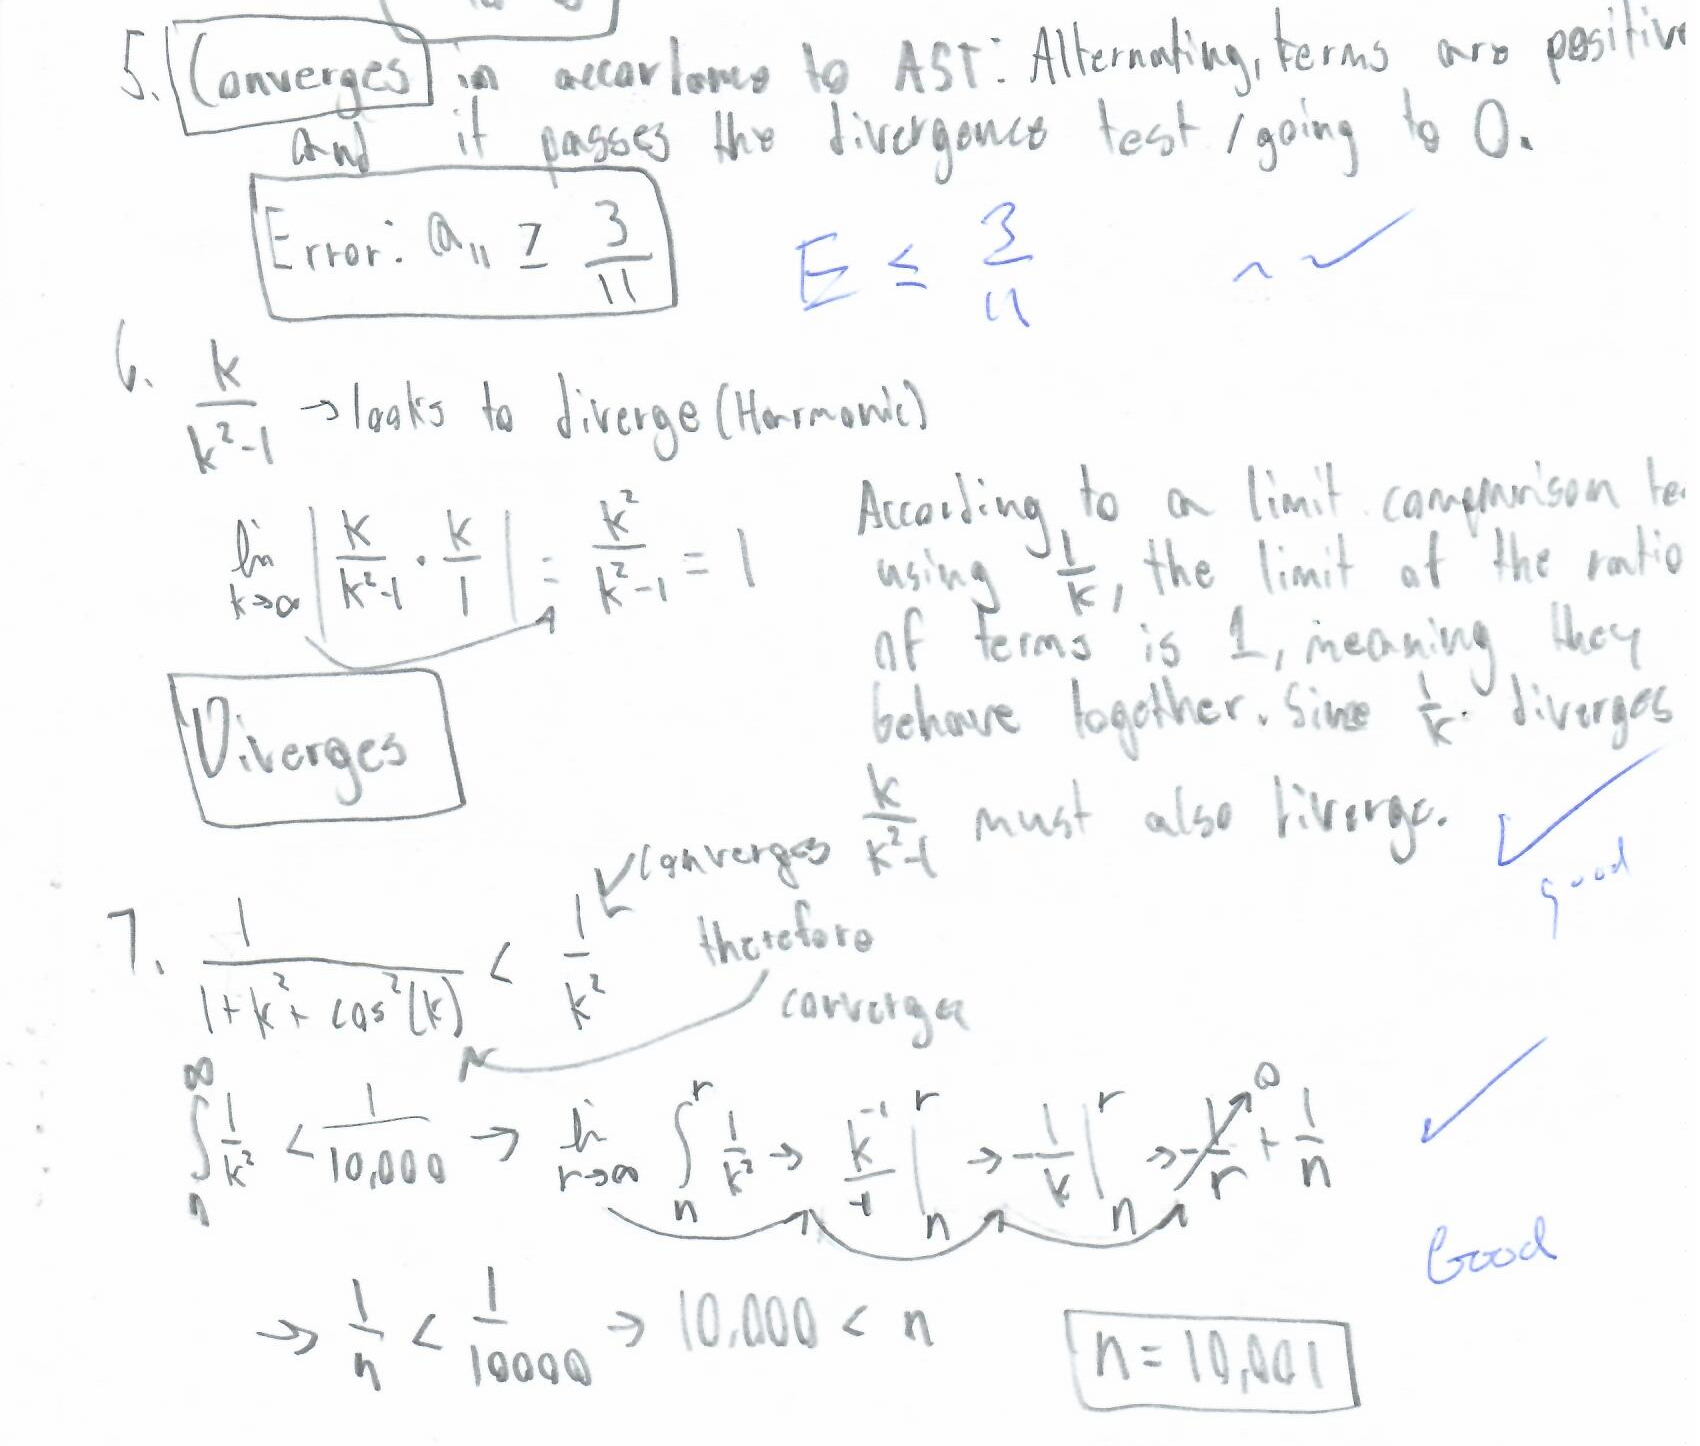 5. Converges in accordance to AST: Alternating, terms are positive
and it passes the divergence test / going to 0.
Error: a₁₁ ≥ 3/11
E ≤ 3/11 ~ ✓
6. k/(k²-1) → looks to diverge (Harmonic)
lim k→∞ | k/(k²-1) · k/1 | = k²/(k²-1) = 1
According to a limit comparison te
using 1/k, the limit of the ratio
of terms is 1, meaning they
behave together. Since 1/k diverges
k/(k²-1) must also diverge.
Diverges
✓ good
7. 1/(1+k²+cos²(k)) < 1/k² converges
therefore
converges
∫ₙ^∞ 1/k² < 1/10,000 → lim r→∞ ∫ₙ^r 1/k² → k⁻¹/-1 |ₙ^r → -1/k |ₙ^r → -1/r 0 + 1/n
✓ Good
→ 1/n < 1/10000 → 10,000 < n
n = 10,001